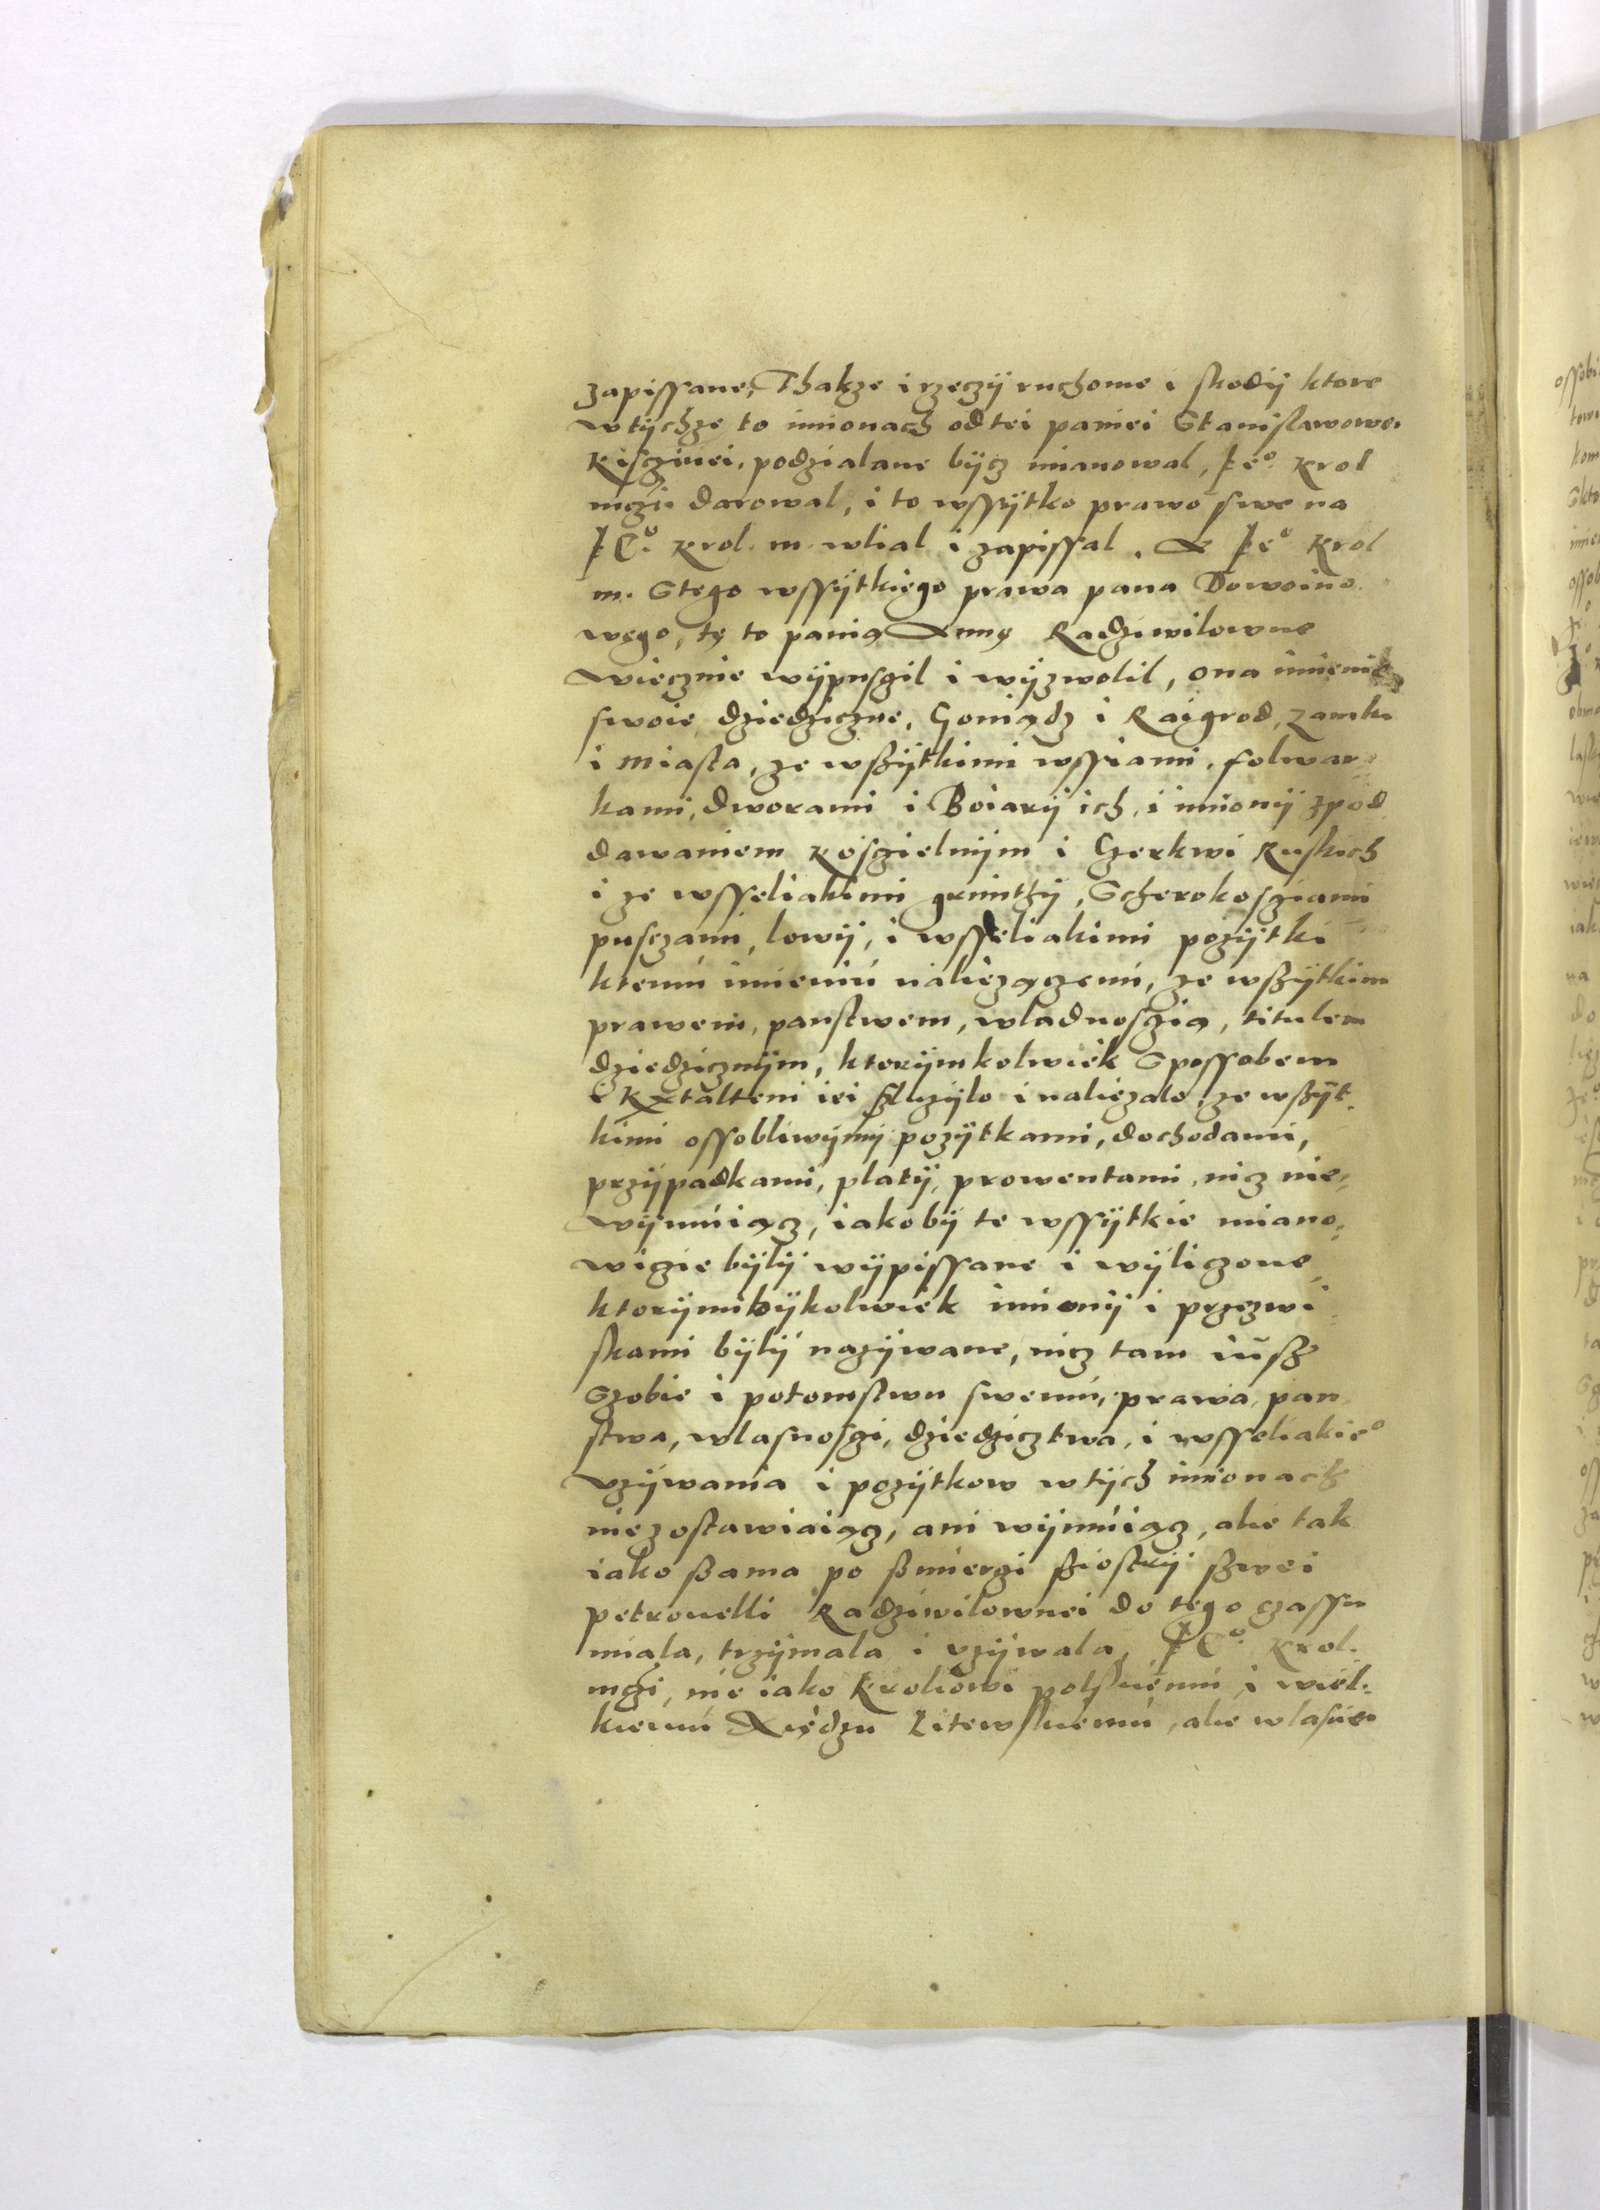 zapissane, Thakze i rzeczÿ ruchome i skodÿ ktore
wtÿchze to imionach odtei paniei Stanislawowe.
Kisczinei, podzialane bÿcz mianowal, Ie° Krol
mczi darowal, i to wssÿtko prawo swe na
IE° Krol. m. wlial i zapissal. A Ie° Krol
m. Stego wssÿtkiego prawa pana Dowoino
wego, tę to panią Annę Radziwilowne
wiecznie wÿpusczil i wÿzwolil, ona imienie
swoie dziedziczne, Goniądz i Raigrod, zamki
i miasta, ze wszÿtkimi wssiami, folwar-
kami, dworami i Boiarÿ ich, i imionÿ zpod
dawaniem Kosczielnÿm i Czerkwi Ruskich
i ze wsseliakimi gruntÿ, Scherokosciami
pusczami, lowÿ, i wsseliakimi pozÿtki
ktemu imieniu nalieząęzemu, ze wszÿtkim
prawem, panstwem, wladnosczią, titulem
dziedzicznÿm, ktorÿmkolwiek Spossobem
i Kxtaltem iei sluzÿlo i naliezalo, ze wszÿt-
kimi ossobliwÿmÿ pozÿtkami, dochodami,
przÿpadkami, platÿ, prowentami, nicz nie-
wÿmuiącz, iakobÿ te wssÿtkie miano-
wicie bÿlÿ wÿpissane i wÿliczone,
ktorÿmibÿkolwiek imionÿ i przezwi
skami bÿlÿ nazÿwane, nicz tam iusz
Szobie i potomstwu swemu, prawa, pan
stwa, wlasnosci, dziedzicztwa, i wsseliakie°
uzÿwania i pozÿtkow wtÿch imionach
niezostawiaiącz, ani wÿmuiącz, alie tak
iako szama po szmierzi sziostrÿ szwei
petronelli Radziwilownei do tego czassu
miala, trzÿmala i uzÿwala, IE° Krol.
mczi, nie iako Kroliowi polskiemu i wiel-
kiemu Xiędzu Litewskiemu, alie wlasnei